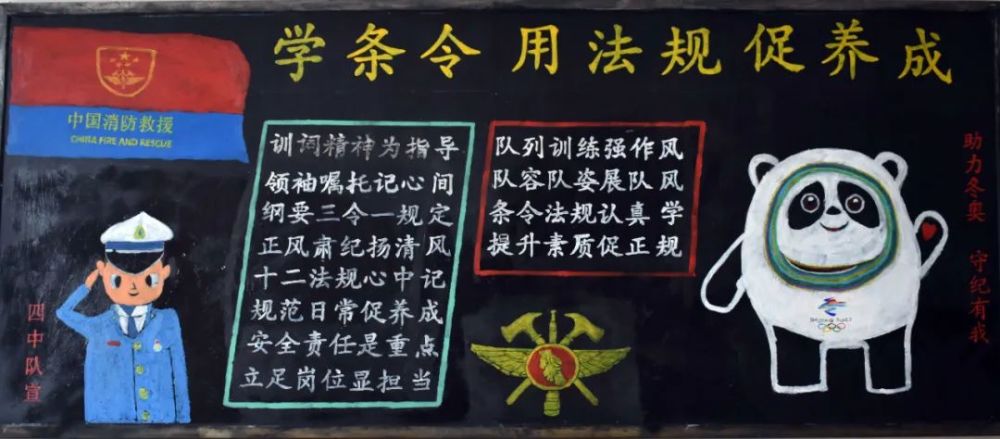 学条令用法规促养成
中国消防救援
CHINA FIRE AND RESCUE
训词精神为指导
领袖嘱托记心间
纲要三令一规定
正风肃纪扬清风
十二法规心中记
规范日常促养成
安全责任是重点
立足岗位显担当
队列训练强作风
队容队姿展队风
条令法规认真学
提升素质促正规
助力冬奥 守纪有我
四中队宣